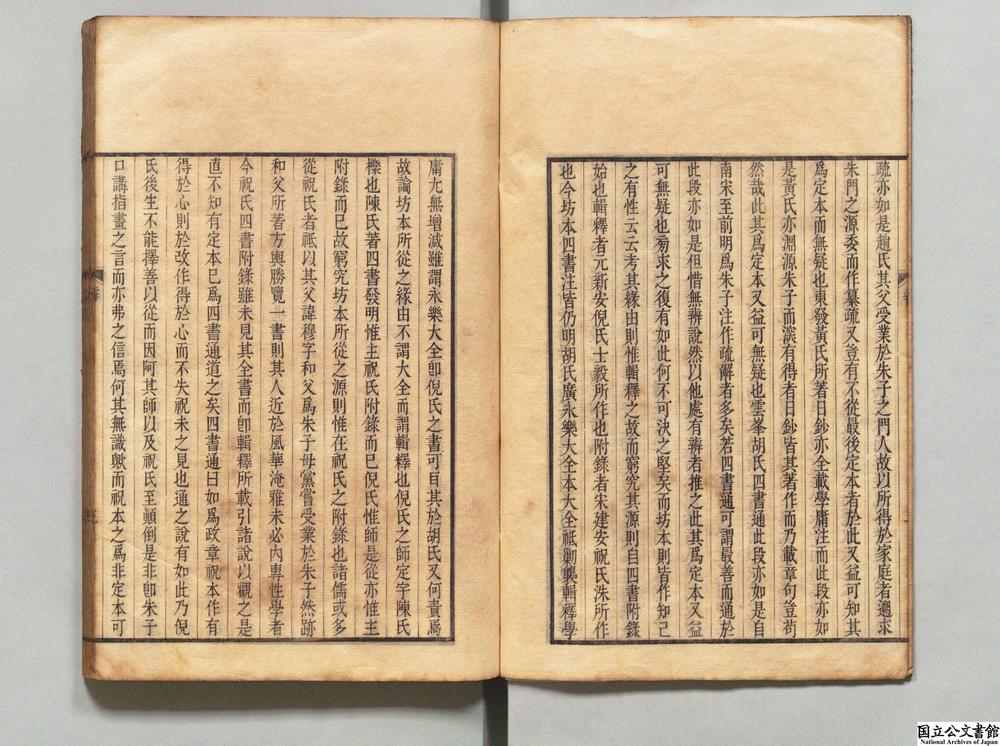 疏亦如是趙氏其父受業於朱子之門人故以所得於家庭者遡求
朱門之源委而作纂疏又豈有不從最後定本者於此又益可知其
爲定本而無疑也東發黃氏所著日鈔亦全載學庸注而此段亦如
是黃氏亦淵源朱子而深有得者日鈔皆其著作而乃載章句豈苟
然哉此其爲定本又益可無疑也雲峯胡氏四書通此段亦如是自
南宋至前明爲朱子注作疏解者多矣若四書通可謂最善而通於
此段亦如是但惜無辨說然以他處有辨者推之此其爲定本又益
可無疑也旁求之復有如此何不可決之堅矣而坊本則皆作知己
之有性云云考其緣由則惟輯釋之故而窮究其源則自四書附錄
始也輯釋者元新安倪氏士毅所作也附錄者宋建安祝氏洙所作
也今坊本四書注皆仍明胡氏廣永樂大全本大全祗剿襲輯釋學
庸尤無增減雖謂永樂大全卽倪氏之書可目其於胡氏又何責焉
故論坊本所從之緣由不謂大全而謂輯釋也倪氏之師定宇陳氏
櫟也陳氏著四書發明惟主祝氏附錄而已倪氏惟師是從亦惟主
附錄而已故窮究坊本所從之源則惟在祝氏之附錄也諸儒或多
從祝氏者祗以其父諱穆字和父爲朱子母黨嘗受業於朱子然跡
和父所著方輿勝覽一書則其人近於風華淹雅未必內專性學者
今祝氏四書附錄雖未見其全書而卽輯釋所載引諸說以觀之是
直不知有定本巳爲四書通道之矣四書通曰如爲政章祝本作有
得於心則於改作得於心而不失祝未之見也通之說有如此乃倪
氏後生不能擇善以從而因阿其師以及祝氏至顛倒是非卽朱子
口講指畫之言而亦弗之信焉何其無識歟而祝本之爲非定本可
国立公文書館
National Archives of Japan